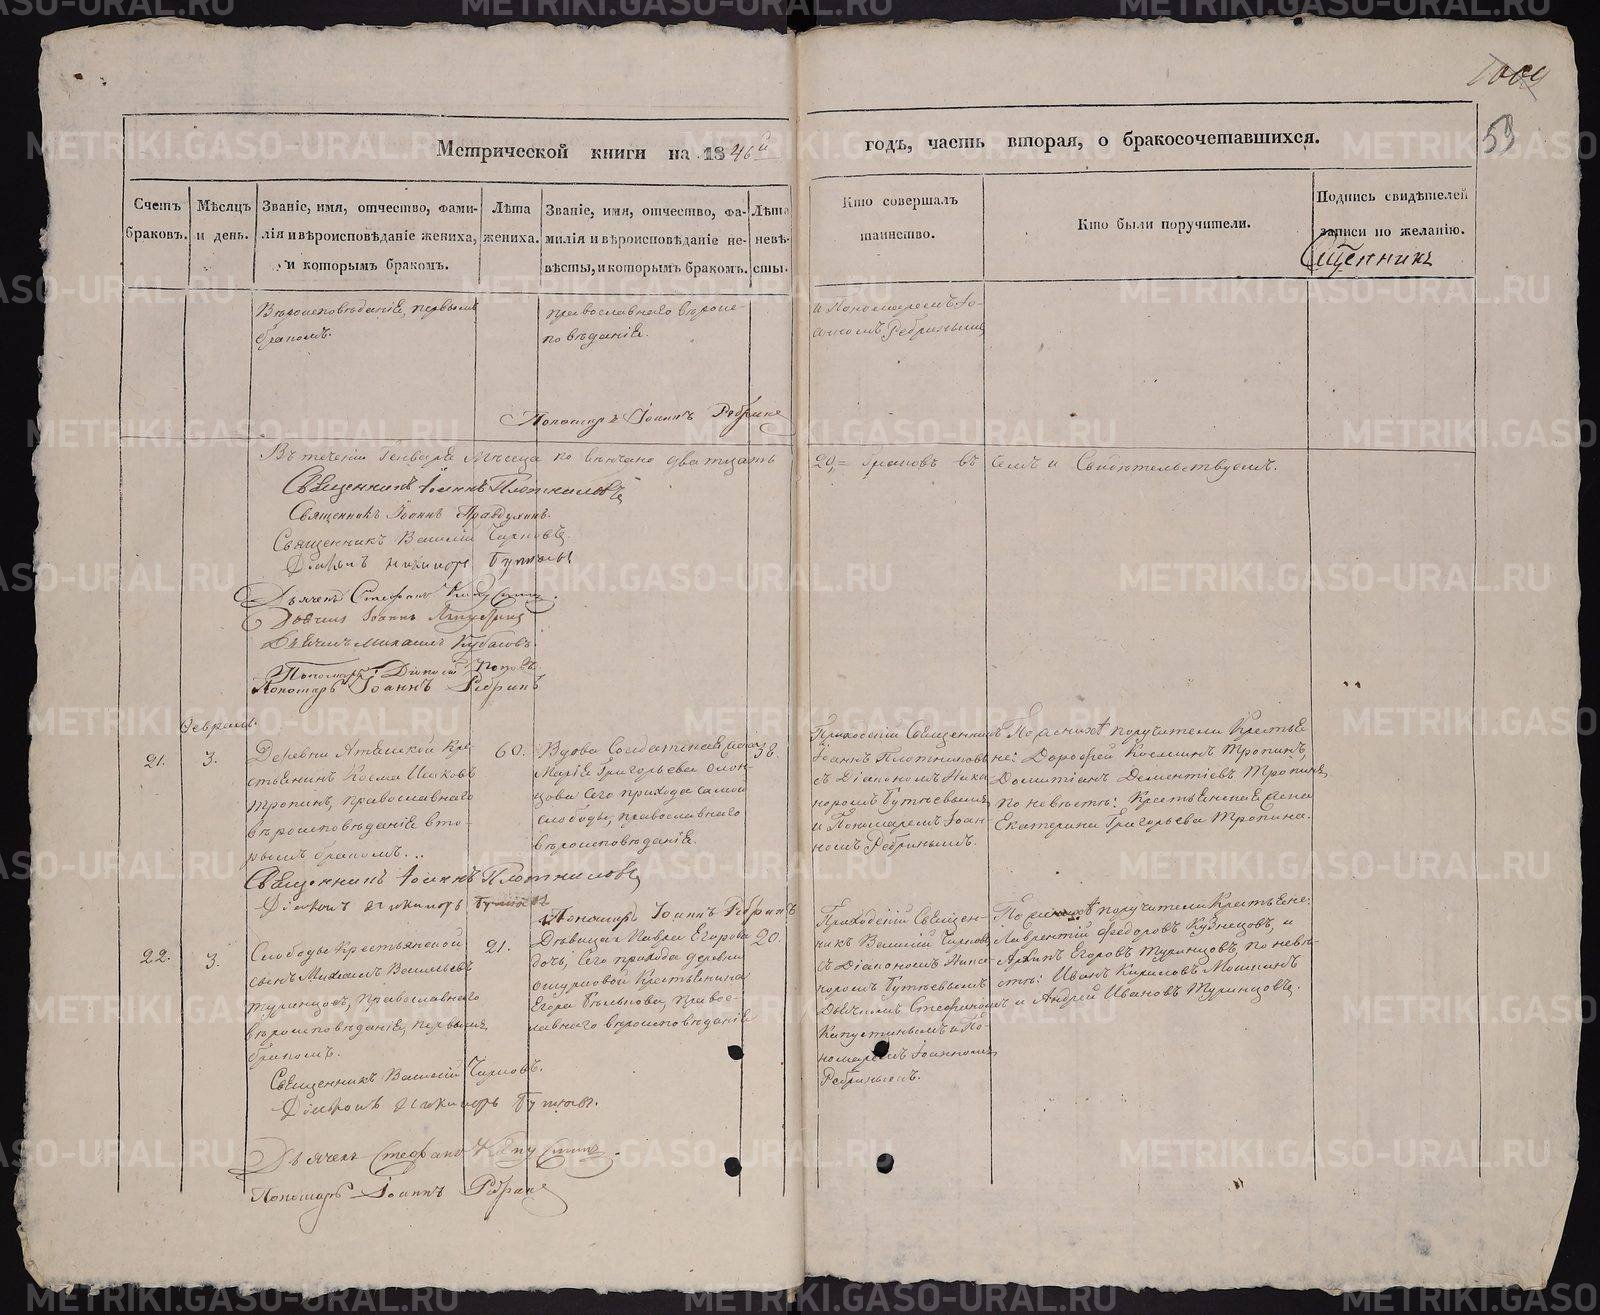 1009
59
Метрической книги на 1846й годъ, часть вторая, о бракосочетавшихся.
Счетъ браковъ.
Мѣсяцъ и день.
Званіе, имя, отчество, фами-
лія и вѣроисповѣданіе жениха,
и которымъ бракомъ.
Лѣта
жениха.
Званіе, имя, отчество, фа-
милія и вѣроисповѣданіе не-
вѣсты, и которымъ бракомъ.
Лѣта
невѣ-
сты.
Кто совершалъ
таинство.
Кто были поручители.
Подпись свидѣтелей
записи по желанію.
Сщенникъ
Вѣроисповѣданіе, первымъ
бракомъ.
православнаго вѣроис-
повѣданіе.
и Пономаремъ Іо-
анномъ Ребринымъ
Пономарь Іоаннъ Ребринъ
Въ теченіи Генваря Мѣсеца по вѣнчано дватцать
20,= браковъ въ чемъ и Свидѣтельствуемъ.
Священникъ Іоаннъ Плотниковъ
Священникъ Іоаннъ
Священникъ Василій
Діаконъ Никифоръ
Дьячекъ Стефанъ Капустинъ.
Іоаннъ
Дьячекъ Михаилъ Кубасовъ.
Пономарь Поповъ.
Пономарь Іоаннъ Ребринъ
Февраль.
21.
3.
Деревни Кре-
стьянинъ Косма
Тропинъ, православнаго
вѣроисповѣданіе вто-
рымъ бракомъ.
60.
Вдова Солдатская жена
Маріе Григорьева
сего прихода самой
слободы, православнаго
вѣроисповѣданіе.
38.
Приходскій Священникъ
Іоаннъ Плотниковъ
съ Діакономъ Ники-
форомъ
и Пономаремъ Іоан-
номъ Ребринымъ.
По женихѣ поручители Крестья
не: Дорофей Косминъ Тропинъ,
Дометіанъ Дементіевъ Тропинъ
по невѣстѣ: Крестьянская жена
Екатерина Григорьева Тропина.
Священникъ Іоаннъ Плотниковъ
Діаконъ Никифоръ
Пономарь Іоаннъ Ребринъ
22.
3.
Слободы Крестьянской
сынъ Михаилъ Васильевъ
Туринцовъ, Православнаго
вѣроисповѣданіе, первымъ
бракомъ.
21.
Дѣвица Мавра Егорова
дочь, Сего прихода деревни
Крестьянина
Егора Бѣлькова, право-
славнаго вѣроисповѣданіе
20.
Приходскій Священ-
никъ Василій
съ Діакономъ Ники-
форомъ
Дьячкомъ Стефаномъ
Капустинымъ и По-
номаремъ Іоанномъ
Ребринымъ.
По женихѣ поручители Крестьяне:
Лаврентій Федоровъ Кузнецовъ, и
Архипъ Егоровъ Туринцовъ, по невѣ-
стѣ: Иванъ Кириловъ Мошкинъ
и Андрей Ивановъ Туринцовъ.
Священникъ Василій
Діаконъ Никифоръ
Дьячекъ Стефанъ Капустинъ.
Пономарь Іоаннъ Ребринъ
METRIKI.GASO-URAL.RU